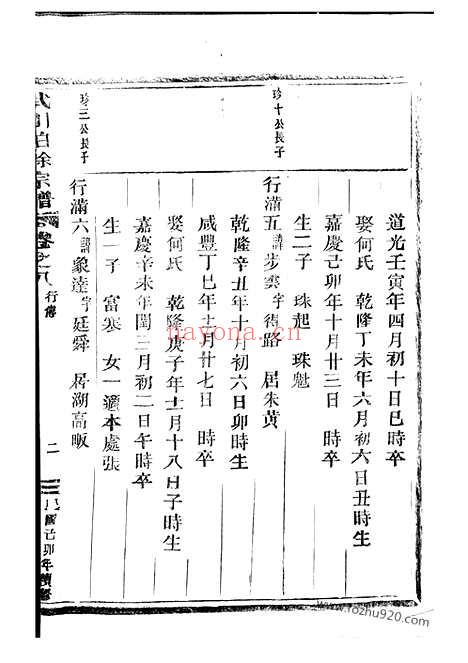 道光壬寅年四月初十日巳時卒
娶何氏 乾隆丁未年六月初六日丑時生
嘉慶己卯年十月廿三日 時卒
生二子 珠起 珠魁
珍十公長子
行滿五諱步雲字待路 居朱黃
乾隆辛丑年十月初六日卯時生
咸豐丁巳年十月廿七日 時卒
娶何氏 乾隆庚子年十一月十八日子時生
嘉慶辛未年閏三月初二日午時卒
生一子 富寒 女一適本處張
珍三公長子
行滿六諱象達字廷舜 居湖高畈
徐宗譜 卷之八 行傳
二
民國己卯年續修
nayona.cn
www.fozhu920.com